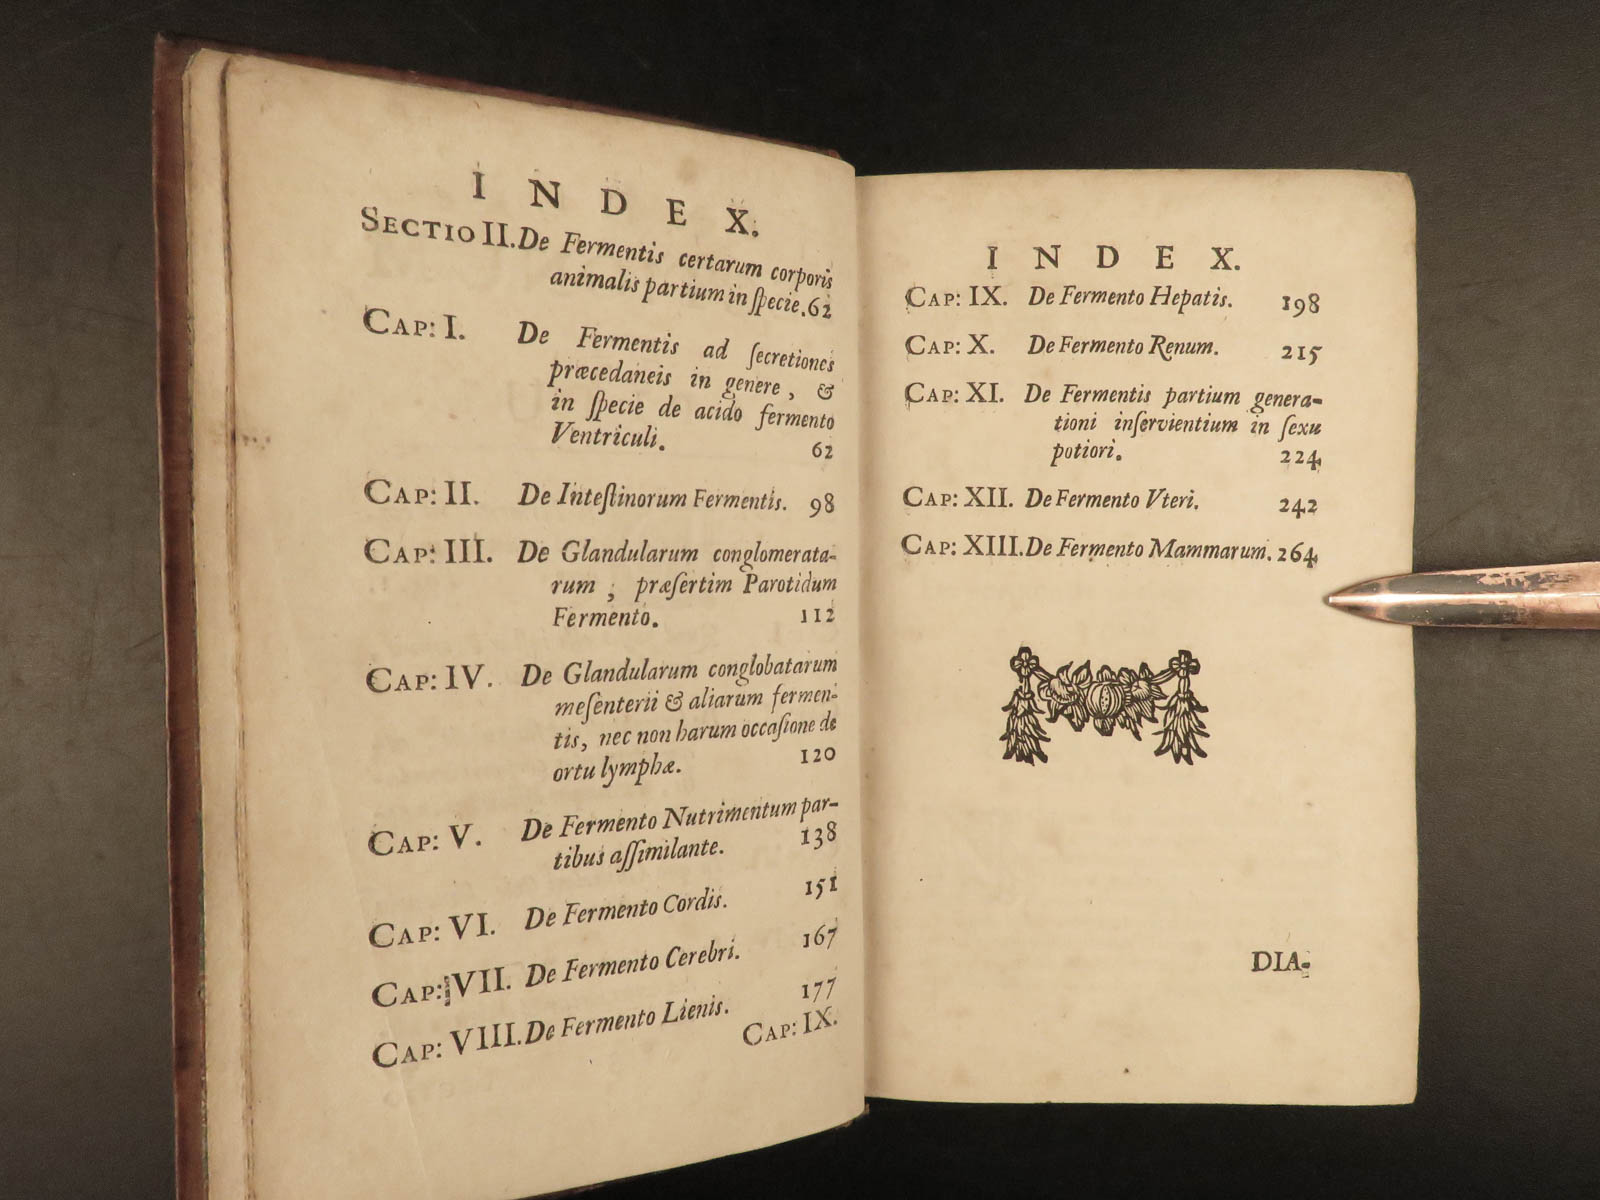 INDEX.
SECTIO II. De Fermentis certarum corporis
animalis partium in ſpecie. 62
CAP: I. De Fermentis ad ſecretiones
præcedaneis in genere, &
in ſpecie de acido fermento
Ventriculi. 62
CAP: II. De Inteſtinorum Fermentis. 98
CAP: III. De Glandularum conglomerata-
rum; præſertim Parotidum
Fermento. 112
CAP: IV. De Glandularum conglobatarum
meſenterii & aliarum fermen-
tis, nec non harum occaſione de
ortu lymphæ. 120
CAP: V. De Fermento Nutrimentum par-
tibus aſſimilante. 138
CAP: VI. De Fermento Cordis. 151
CAP: VII. De Fermento Cerebri. 167
CAP: VIII. De Fermento Lienis. 177
CAP: IX.
INDEX.
CAP: IX. De Fermento Hepatis. 198
CAP: X. De Fermento Renum. 215
CAP: XI. De Fermentis partium genera-
tioni inſervientium in ſexu
potiori. 224
CAP: XII. De Fermento Vteri. 242
CAP: XIII. De Fermento Mammarum. 264
DIA-